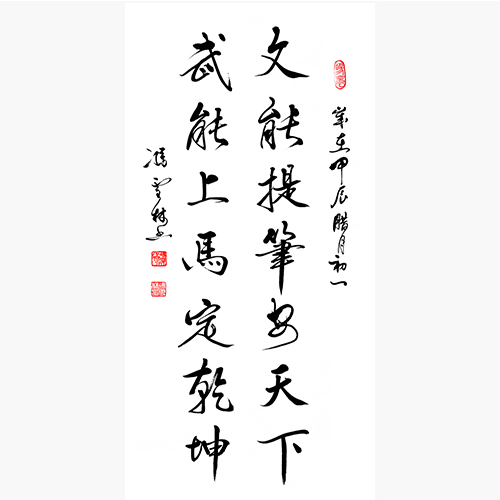 歲在甲辰臘月初一
文能提筆安天下
武能上馬定乾坤
馮雪林書